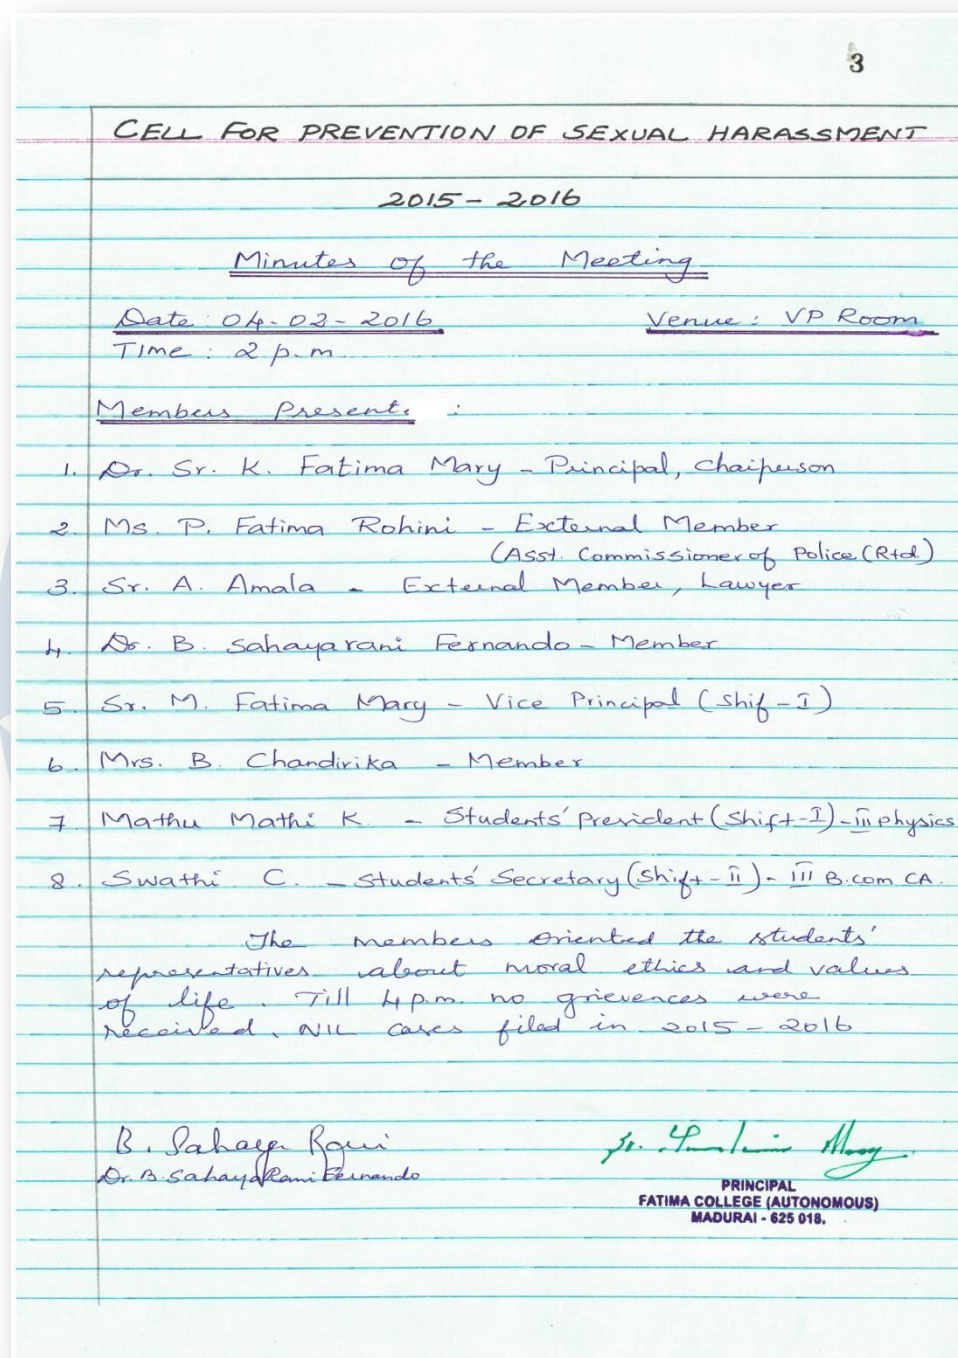 3
CELL FOR PREVENTION OF SEXUAL HARASSMENT
2015 - 2016
Minutes of the Meeting
Date: 04-02-2016 Venue: VP Room
Time: 2 p.m.
Members Present :
1. Dr. Sr. K. Fatima Mary - Principal, Chaiperson
2. Ms. P. Fatima Rohini - External Member
(Asst. Commissioner of Police (Rtd)
3. Sr. A. Amala - External Member, Lawyer
4. Dr. B. Sahayarani Fernando - Member
5. Sr. M. Fatima Mary - Vice Principal (Shif - I)
6. Mrs. B. Chandirika - Member
7. Mathu Mathi K. - Students' President (Shift-I) - III Physics
8. Swathi C. - Students' Secretary (Shift-II) - III B.com CA.
The members oriented the students'
representatives about moral ethics and values
of life. Till 4 p.m. no grievences were
received. NIL cases filed in 2015 - 2016
B. Sahaya Rani
Dr. B. Sahaya Rani Fernando
Sr. Fatima Mary
PRINCIPAL
FATIMA COLLEGE (AUTONOMOUS)
MADURAI - 625 018.